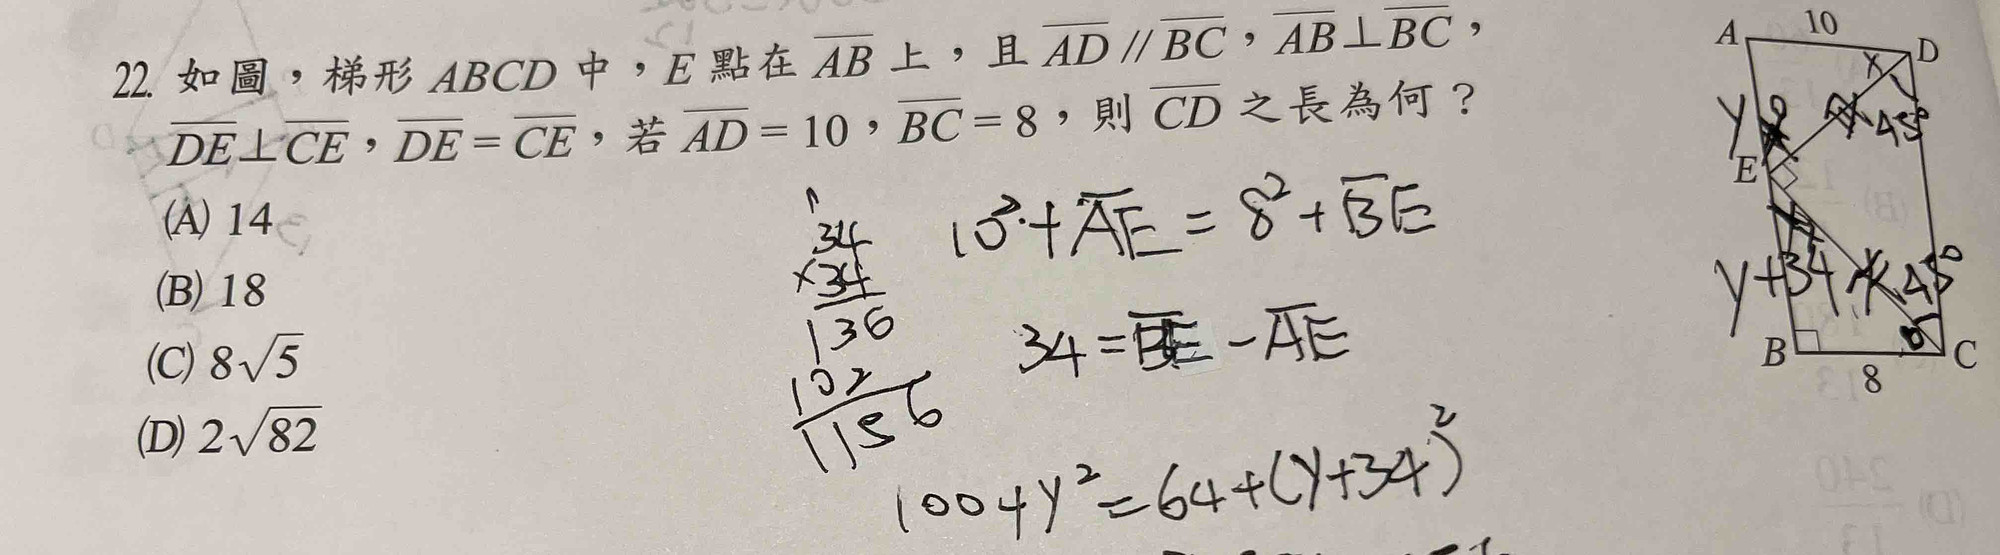 22. 如圖，梯形 ABCD 中，E 點在 AB 上，且 AD // BC，AB⊥BC，
DE⊥CE，DE = CE，若 AD = 10，BC = 8，則 CD 之長為何？
(A) 14
(B) 18
(C) 8√5
(D) 2√82
34
×34
136
102
1156
10²+AE = 8²+BE
34 = BE - AE
100+y² = 64+(y+34)²
A 10 D
x
y 45°
E
y+34 x 45°
B C
8